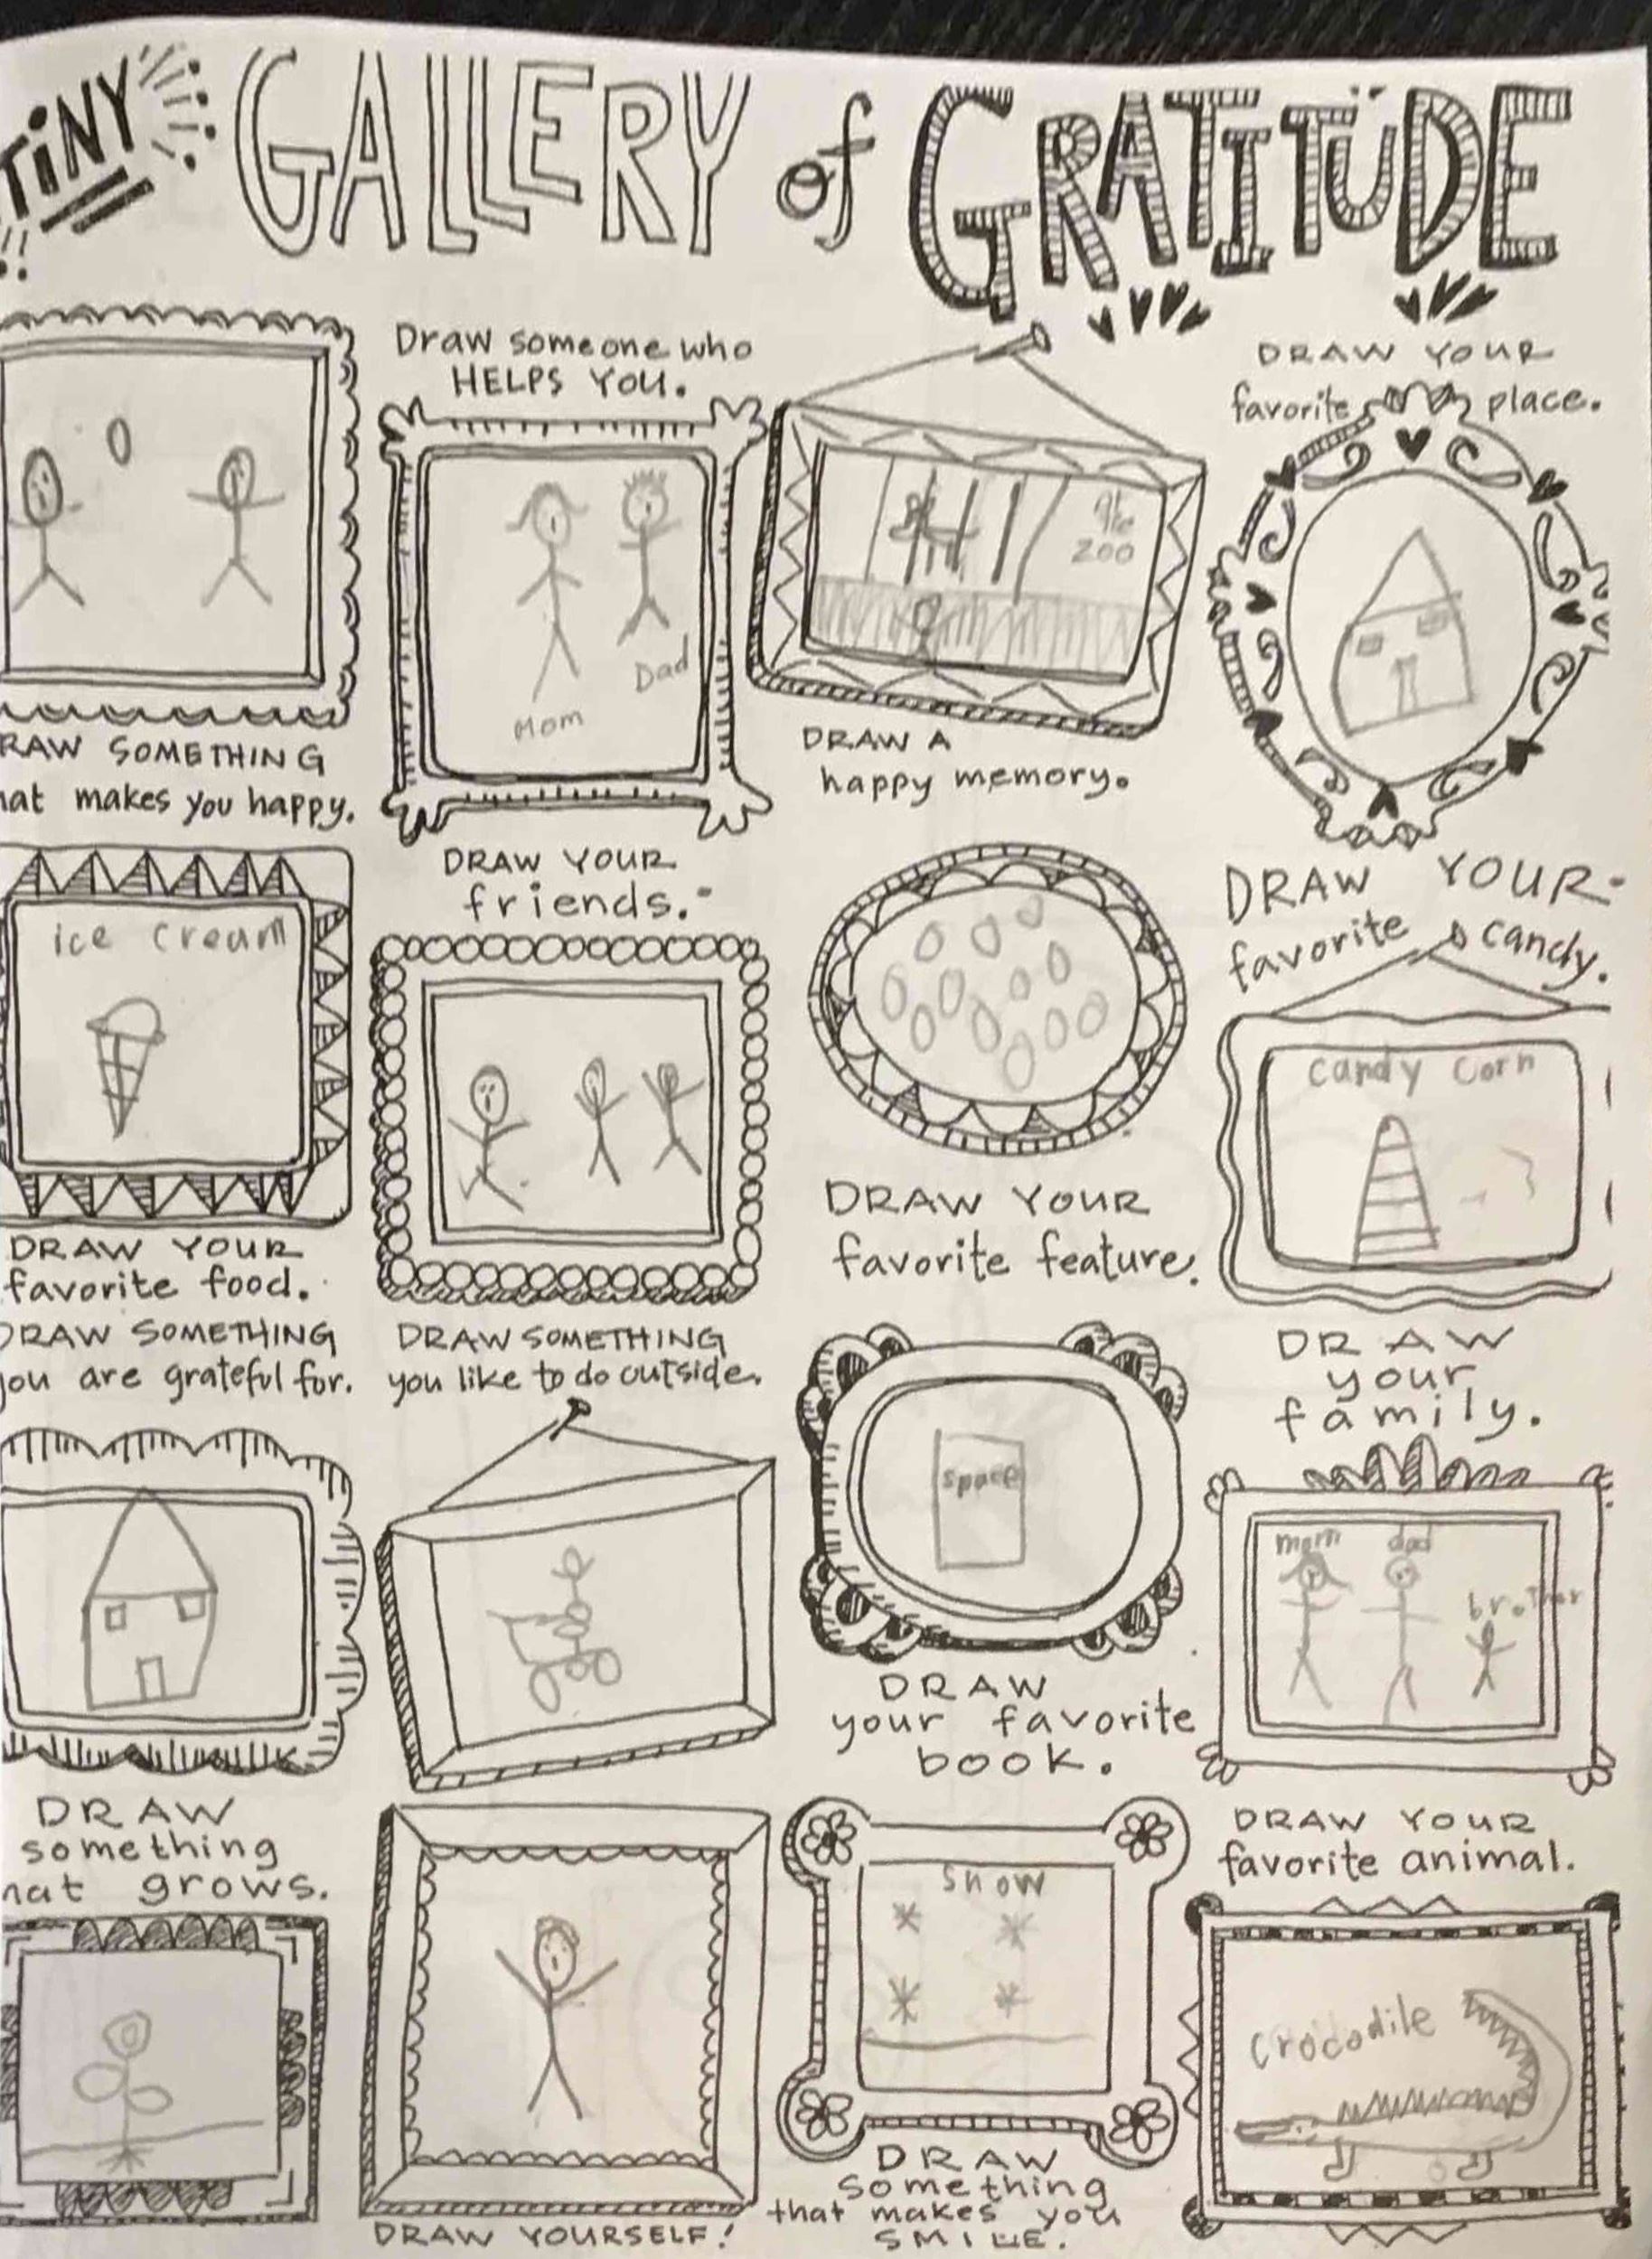 TiNY GALLERY of GRATITUDE
Draw someone who
HELPS YOU.
Mom
Dad
RAW SOMETHING
hat makes you happy.
the
ZOO
DRAW A
happy memory.
DRAW YOUR
favorite place.
ice cream
DRAW YOUR
favorite food.
DRAW YOUR
friends.
DRAW YOUR
favorite feature.
DRAW YOUR
favorite candy.
candy corn
DRAW SOMETHING
you are grateful for.
DRAW SOMETHING
you like to do outside.
space
DRAW
your favorite
book.
DRAW
your
family.
mom dad
brother
DRAW
something
hat grows.
DRAW YOURSELF!
Snow
DRAW
something
that makes you
SMILE.
DRAW YOUR
favorite animal.
Crocodile